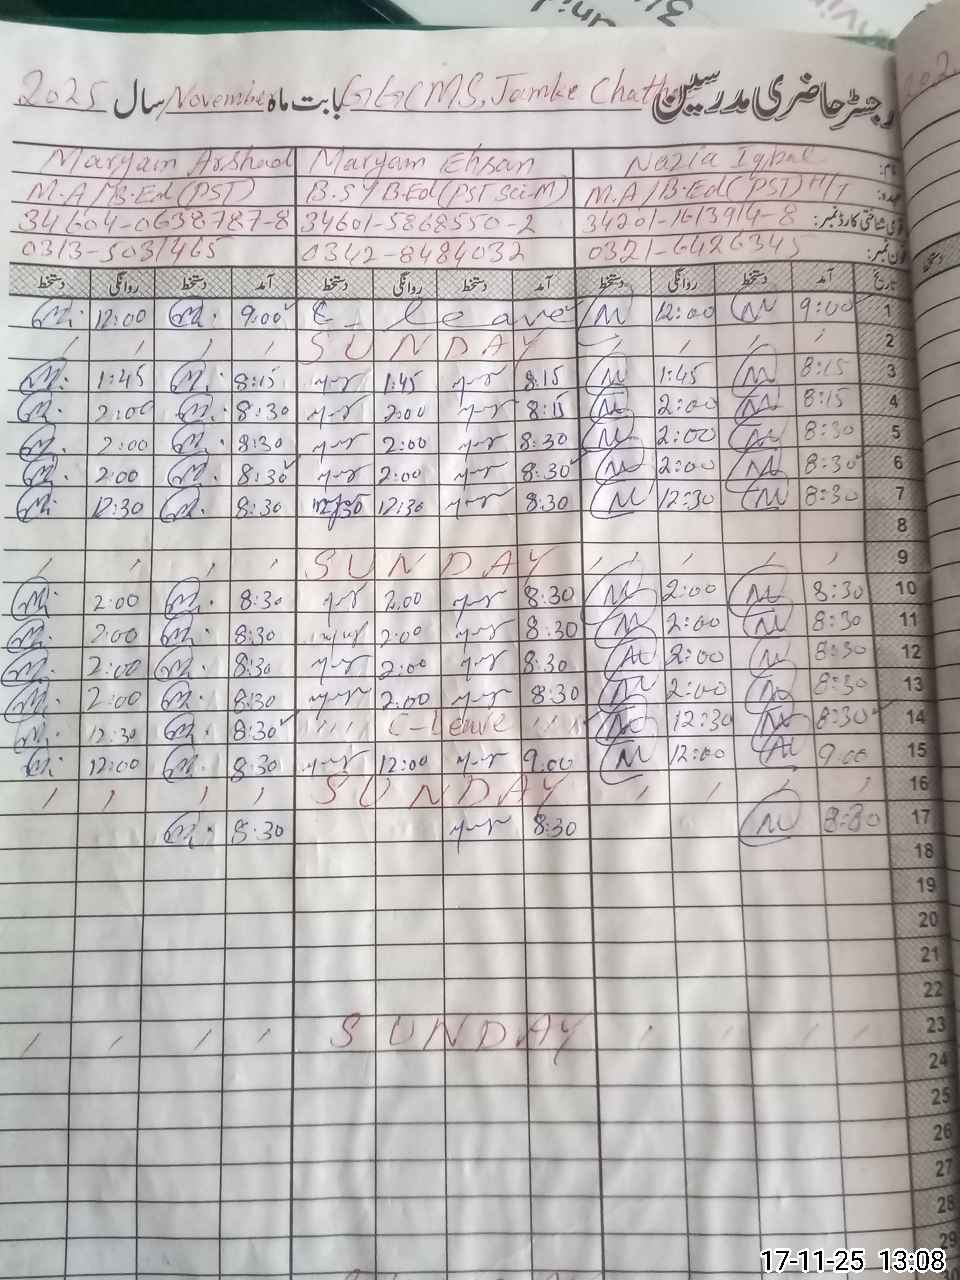 رجسٹر حاضری مدرسین GGCMS, Jamke Chatha بابت ماہ November سال 2025
Maryam Arshad Maryam Ehsan Nazia Iqbal نام:
M.A/B.Ed(PST) B.S/B.Ed(PST Sci-M) M.A/B.Ed(PST)H/T عہدہ:
34604-0638787-8 34601-5868550-2 34201-1613914-8 قومی شناختی کارڈ نمبر:
0313-5031465 0342-8484032 0321-6426345 فون نمبر:
دستخط روانگی دستخط آمد دستخط روانگی دستخط آمد دستخط روانگی دستخط آمد تاریخ
12:00 9:00 C- leave 12:00 9:00 1
SUNDAY 2
1:45 8:15 1:45 8:15 1:45 8:15 3
2:00 8:30 2:00 8:15 2:00 8:15 4
2:00 8:30 2:00 8:30 2:00 8:30 5
2:00 8:30 2:00 8:30 2:00 8:30 6
12:30 8:30 12:30 8:30 12:30 8:30 7
8
SUNDAY 9
2:00 8:30 2:00 8:30 2:00 8:30 10
2:00 8:30 2:00 8:30 2:00 8:30 11
2:00 8:30 2:00 8:30 2:00 8:30 12
2:00 8:30 2:00 8:30 2:00 8:30 13
12:30 8:30 C-Leave 12:30 8:30 14
12:00 8:30 12:00 9:00 12:00 9:00 15
SUNDAY 16
8:30 8:30 8:30 17
18
19
20
21
22
SUNDAY 23
24
25
26
27
28
29
17-11-25 13:08